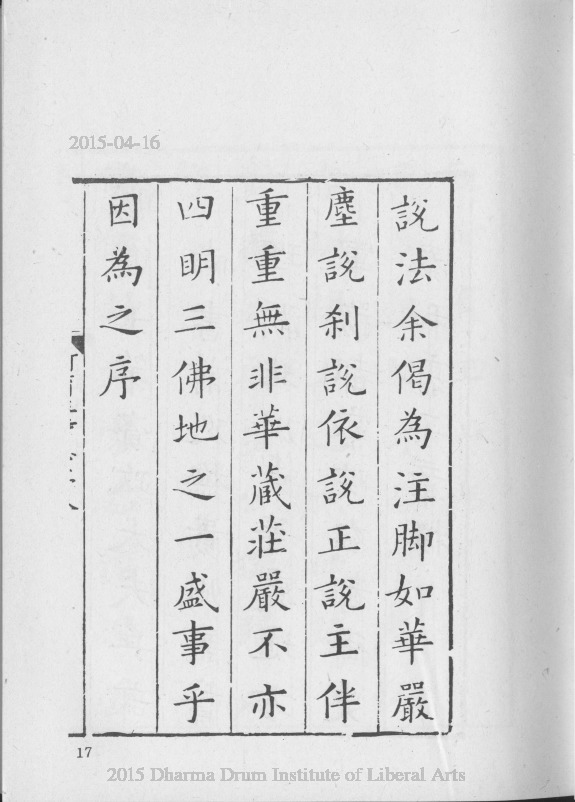 2015-04-16
說法余偈為注脚如華嚴
塵說剎說依說正說主伴
重重無非華藏莊嚴不亦
四明三佛地之一盛事乎
因為之序
17
2015 Dharma Drum Institute of Liberal Arts